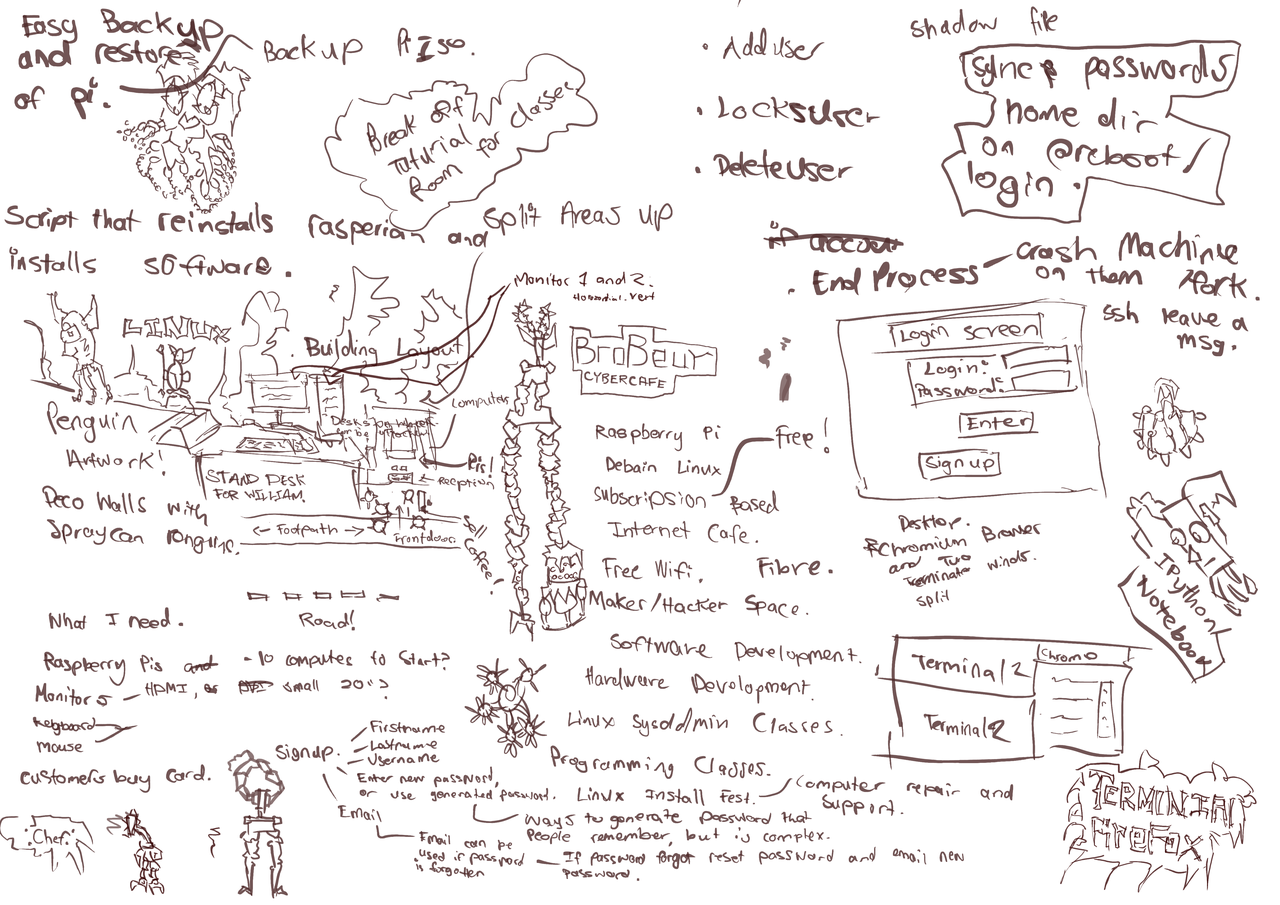 Easy Backup
and restore
of pi.
Backup Pi Iso.
Break off
Tuturial
Room for classes
Script that reinstalls rasperian and
installs software.
Split Areas up
Monitor 1 and 2.
LINUX
Building Layout
Computers
Penguin
Artwork!
Desks
Pis!
Reception
STAND DESK
FOR WILLIAM.
Deco Walls with
Spraycan
← Footpath →
Frontdoor
Coffee!
Road!
BroBeur
CYBERCAFE
Raspberry Pi
Debain Linux
Subscripsion Based
Free!
Internet Cafe.
Free Wifi. Fibre.
Maker/Hacker Space.
Software Development.
Hardware Development.
Linux Sysadmin Classes.
Programming Classes.
Linux Install Fest.
Computer repair and
Support.
• Add user
• Locksuser
• Deleteuser
shadow file
sync passwords
home dir
on @reboot/
login.
if account
• End Process
crash Machine
on them
fork.
ssh leave a
msg.
Login screen
Login:
Password:
Enter
Sign up
Desktop.
Chromium Browser
and Two
Terminator Winds.
Split
IPython
Notebook
Terminal 2
Chromo
Terminal 2
TERMINAL
FireFox
What I need.
Raspberry Pis and - 10 computes to Start?
Monitors - HDMI, or DVI small 20"?
keyboard
mouse
Customers buy card.
Chef.
Signup.
Firstname
Lastname
Username
Enter new password,
or use generated password.
Ways to generate password that
People remember, but is complex.
Email
Email can be
used if password
is forgotten
If password forgot reset password and email new
password.